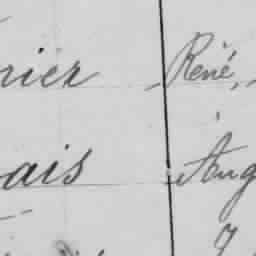 rier René,
ais Aug